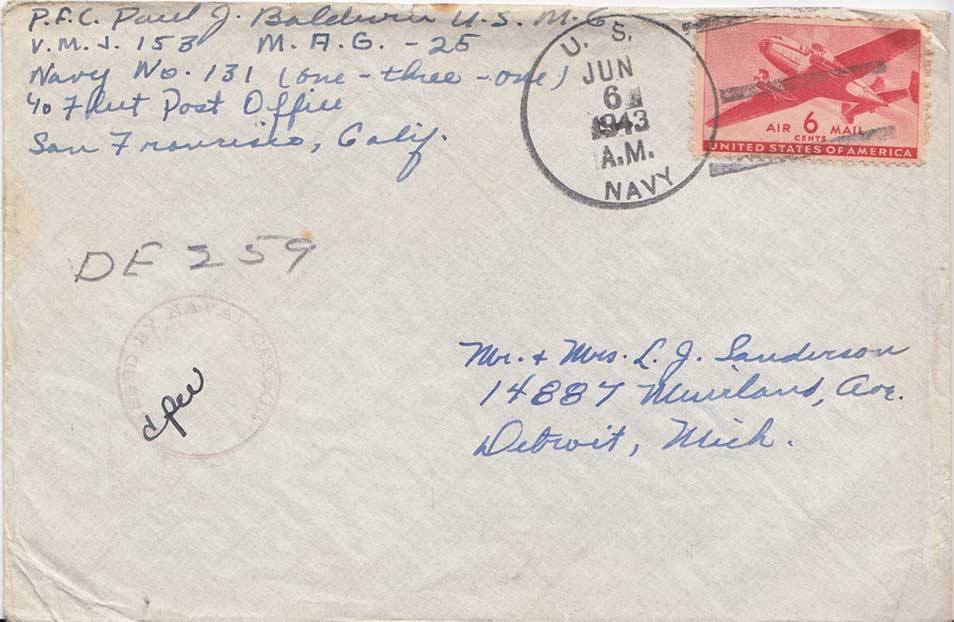 P.F.C. Paul J. Baldwin U.S.M.C.
V.M.J. 153 M.A.G. - 25
Navy No. 131 (one - three - one)
c/o Fleet Post Office
San Francisco, Calif.
U. S.
JUN
6
1943
A.M.
NAVY
AIR 6 MAIL
CENTS
UNITED STATES OF AMERICA
DE 259
PASSED BY NAVAL CENSOR
Mr. + Mrs. L. J. Sanderson
14887 Muirland, Ave.
Detroit, Mich.